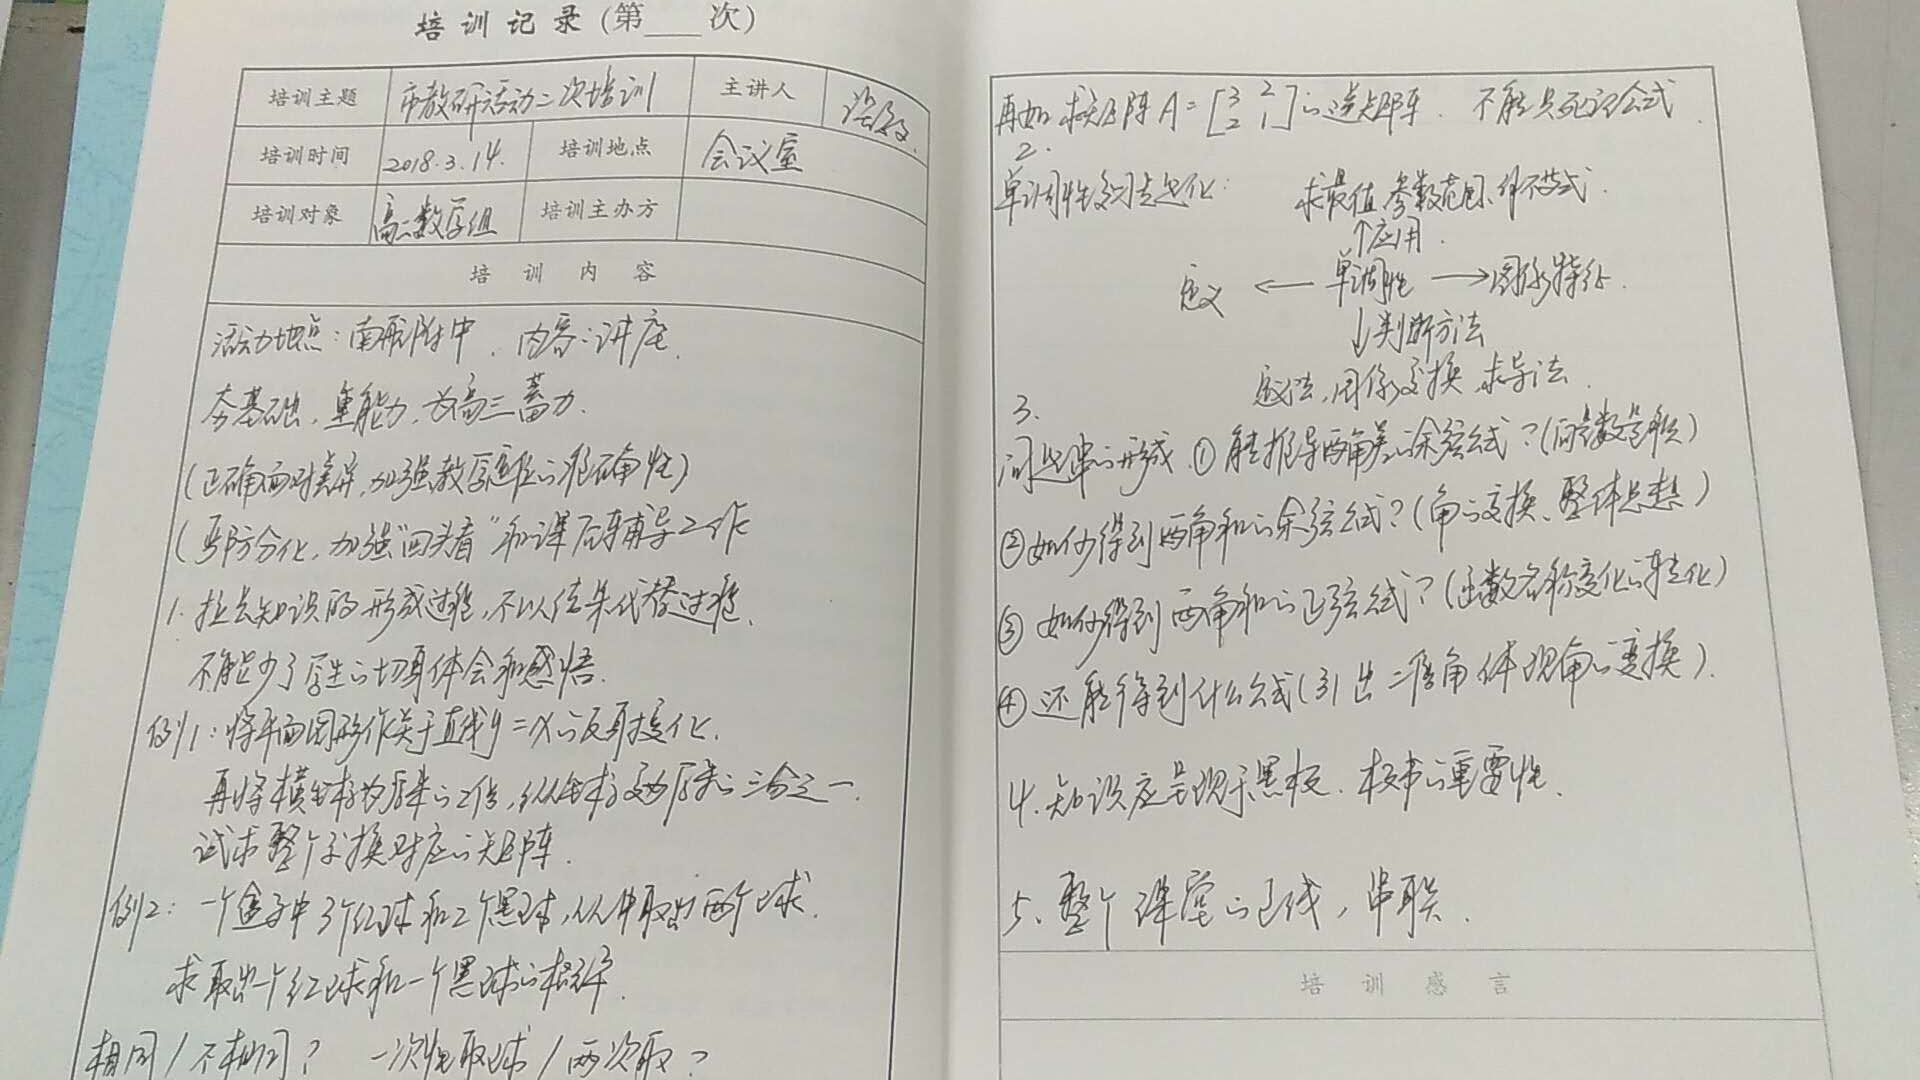 培训记录(第___次)
培训主题 市教研活动二次培训 主讲人
培训时间 2018.3.14. 培训地点 会议室
培训对象 高二数学组 培训主办方
培训内容
活动地点：南航附中. 内容：讲座.
夯基础,重能力,为高三蓄力.
(正确面对差异,加强教学定位的准确性)
(严防分化,加强“回头看”和课后辅导工作
1. 拉长知识的形成过程,不以结果代替过程.
不能缺少了学生的切身体会和感悟.
例1：将平面图形作关于直线y=x的反射变化.
再将横坐标为原来的2倍,纵坐标变为原来的三分之一.
试求整个变换对应的矩阵.
例2：一个盒子中3个红球和2个黑球,从中取出两个球.
求取出一个红球和一个黑球的概率.
相同/不相同? 一次性取球/两次取?
再如 求矩阵A=[3 2
2 1]的逆矩阵. 不能只死记公式.
2.
单调性
求最值,参数范围,解不等式.
↑应用.
定义 ← 单调性 → 图象特征.
↓判断方法
定义法,图象变换,求导法.
3.
问题串的形成.①能推导两角差的余弦公式?(向量数量积)
②如何得到两角和的余弦公式?(角的变换、整体思想)
③如何得到两角和的正弦公式?(函数名称变化的转化)
④还能得到什么公式(引出二倍角体现角的变换).
4.知识应呈现于黑板.板书的重要性.
5、整个课堂的主线,串联.
培训感言